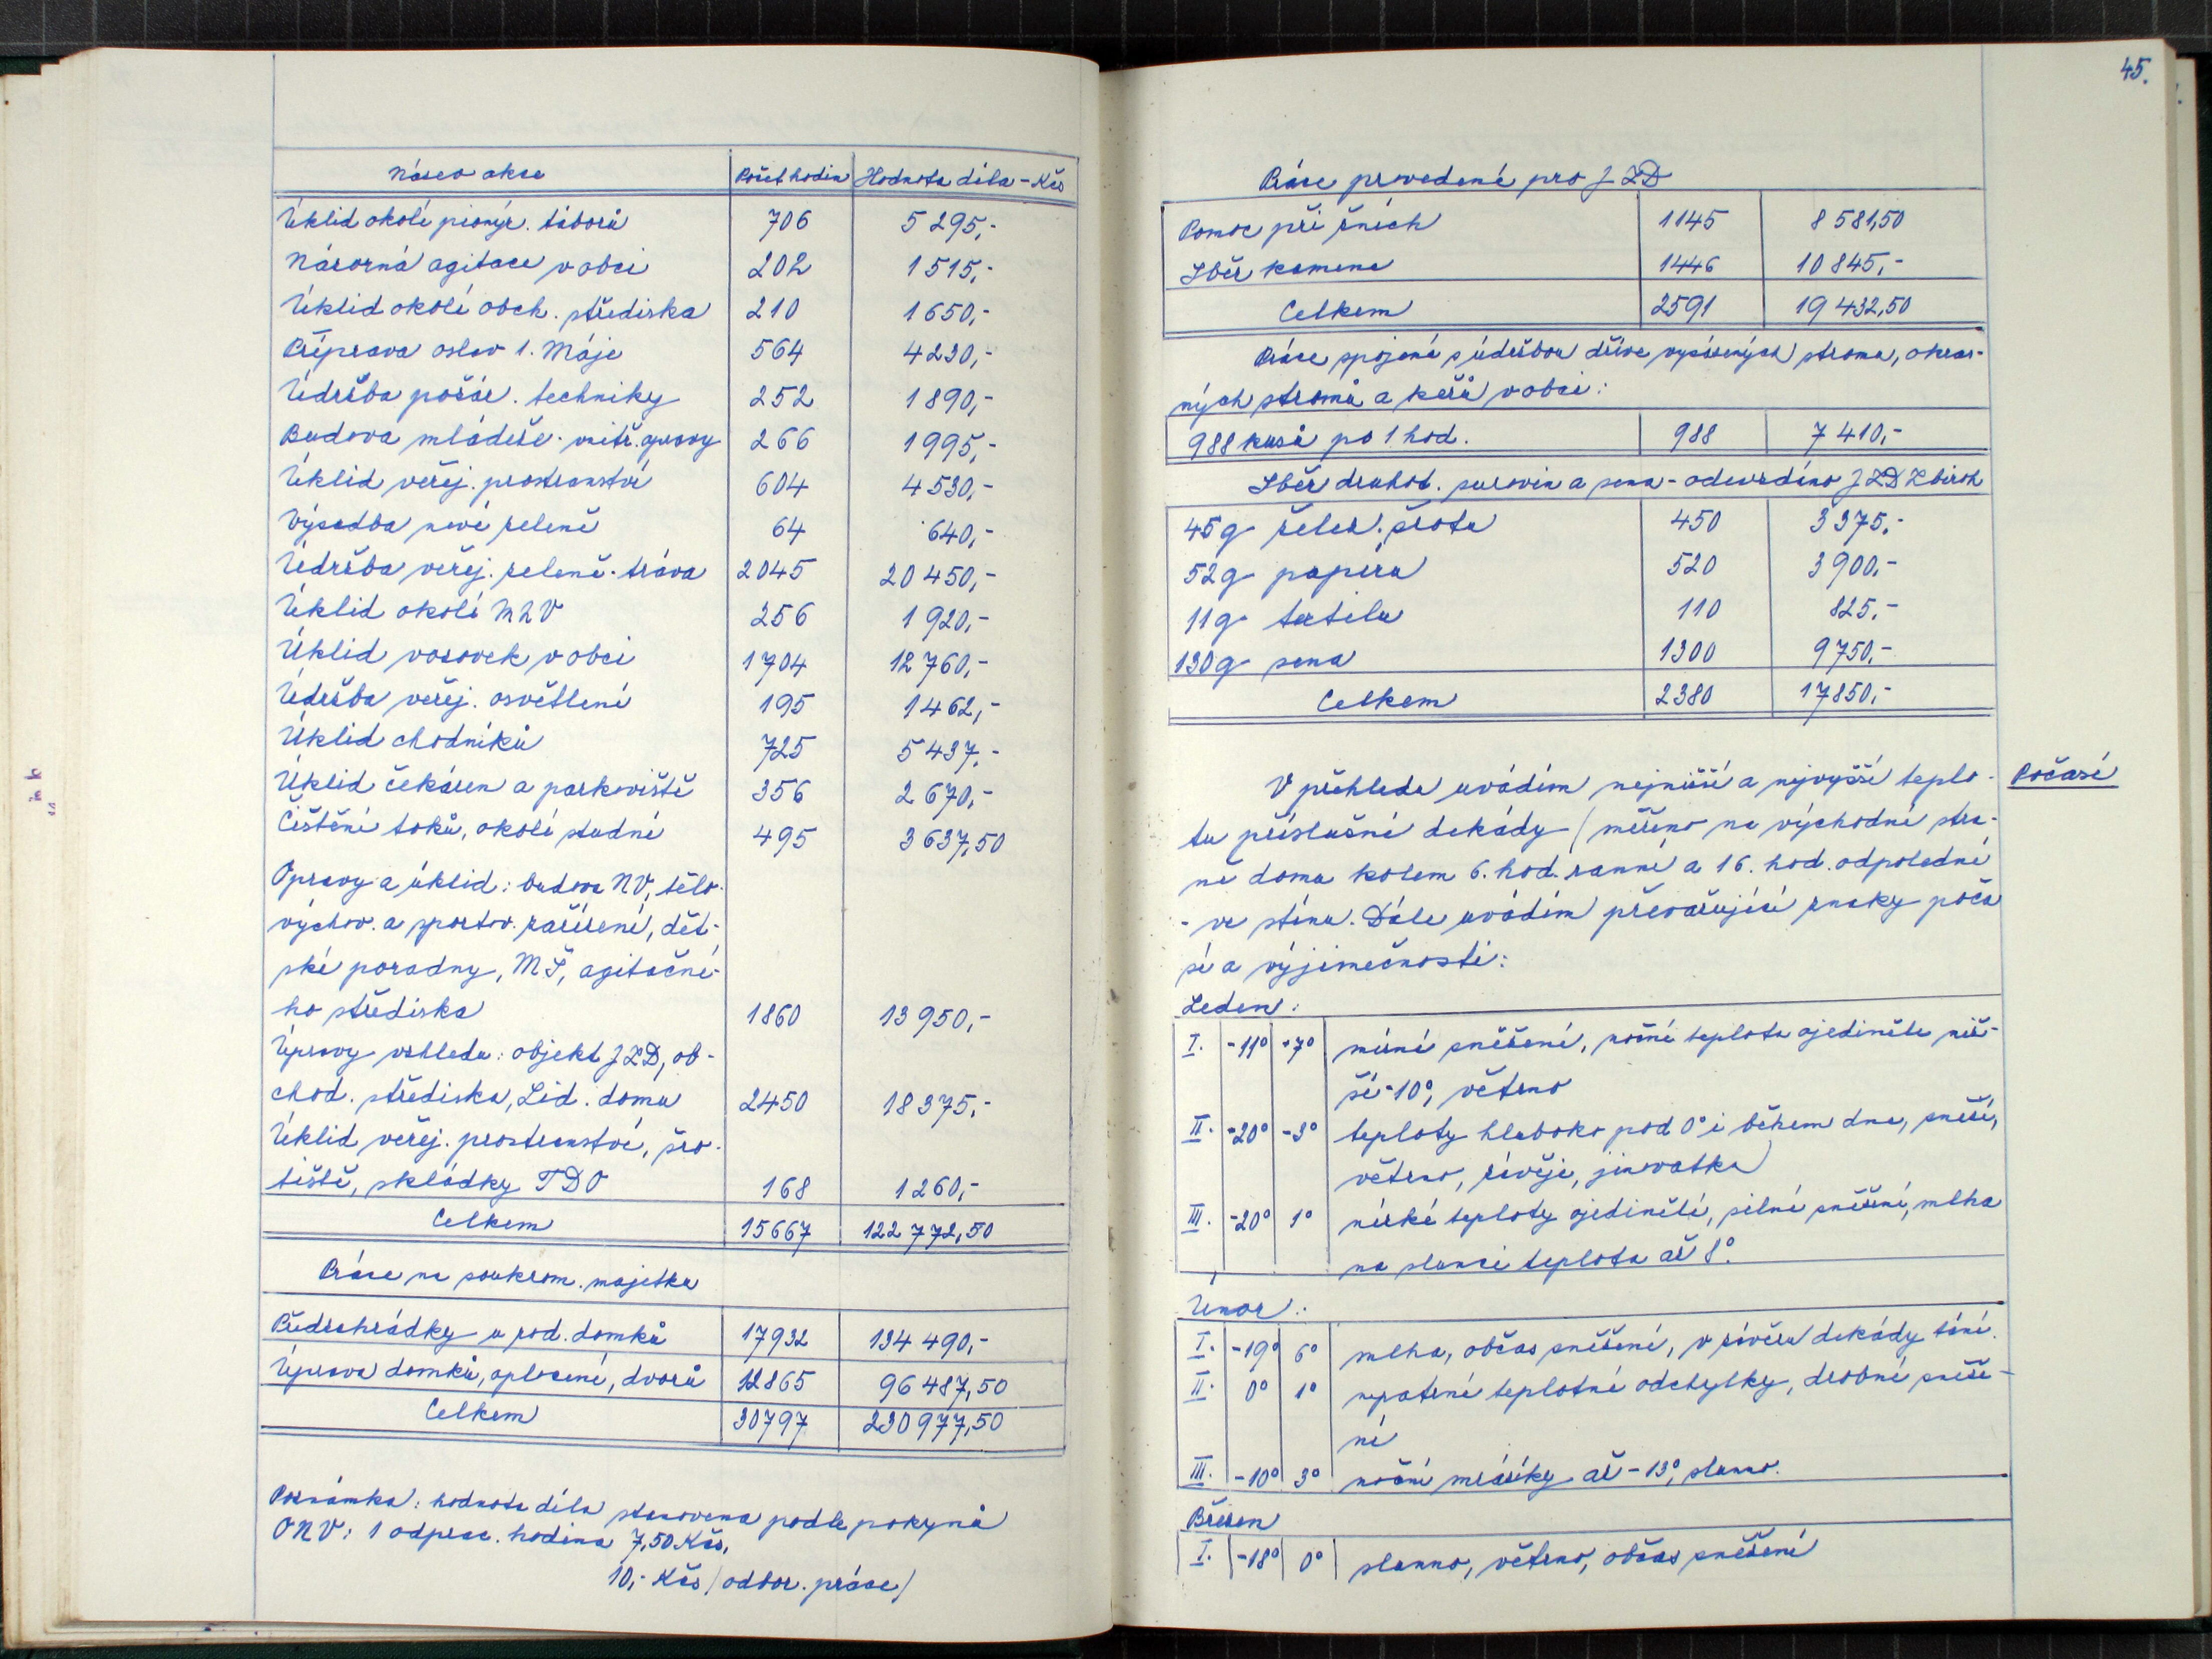 Název akce Počet hodin Hodnota díla - Kčs
Úklid okolí pionýr. táborů 706 5 295,-
Názorná agitace v obci 202 1 515,-
Úklid okolí obch. střediska 210 1 650,-
Příprava oslav 1. Máje 564 4 230,-
Údržba požár. techniky 252 1 890,-
Budova mládeže - vnitř. úpravy 266 1 995,-
Úklid veřej. prostranství 604 4 530,-
Výsadba nové zeleně 64 640,-
Údržba veřej. zeleně - tráva 2045 20 450,-
Úklid okolí MLV 256 1 920,-
Úklid vozovek v obci 1704 12 760,-
Údržba veřej. osvětlení 195 1 462,-
Úklid chodníků 725 5 437,-
Úklid čekáren a parkoviště 356 2 670,-
Čištění toků, okolí studní 495 3 637,50
Opravy a úklid: budova NV, tělo-
výchov. a sportov. zařízení, dět-
ské poradny, MŠ, agitační-
ho střediska 1860 13 950,-
Úpravy vzhledu: objekt JZD, ob-
chod. střediska, Lid. domu 2450 18 375,-
Úklid veřej. prostranství, šro-
tiště, skládky TDO 168 1 260,-
Celkem 15667 122 772,50
Práce na soukrom. majetku
Předzahrádky u rod. domků 17932 134 490,-
Úprava domků, oplocení, dvorů 12865 96 487,50
Celkem 30797 230 977,50
Poznámka: hodnota díla stanovena podle pokynů
ONV: 1 odprac. hodina 7,50 Kčs,
10,- Kčs /odbor. práce/
45.
Práce provedené pro JZD
Pomoc při žních 1145 8 581,50
Sběr kamene 1446 10 845,-
Celkem 2591 19 432,50
Práce spojené s údržbou dříve vysázených stromů, okras-
ných stromů a keřů v obci:
988 kusů po 1 hod. 988 7 410,-
Sběr druhot. surovin a sena - odevzdáno JZD Zbiroh
45 q želez. šrotu 450 3 375,-
52 q papíru 520 3 900,-
11 q textilu 110 825,-
130 q sena 1300 9 750,-
Celkem 2380 17 850,-
V přehledu uvádím nejnižší a nejvyšší teplo- Počasí
tu příslušné dekády /měřeno na východní stra-
ně domu kolem 6. hod. ranní a 16. hod. odpolední
- ve stínu. Dále uvádím převažující znaky poča
sí a výjimečnosti:
Leden:
I. -11° -7° mírné sněžení, noční teplota ojediněle niž-
ší -10°, větrno
II. -20° -3° teploty hluboko pod 0° i během dne, sněží,
větrno, závěje, jinovatka
III. -20° 1° nízké teploty ojedinělé, silné sněžení, mlha
na slunci teplota až 8°.
Únor:
I. -19° 6° mlha, občas sněžení, v závěru dekády tání.
II. 0° 1° nepatrné teplotní odchylky, drobné sněže-
ní
III. -10° 3° noční mrazíky až -13°, slunno.
Březen
I. -18° 0° slunno, větrno, občas sněžení